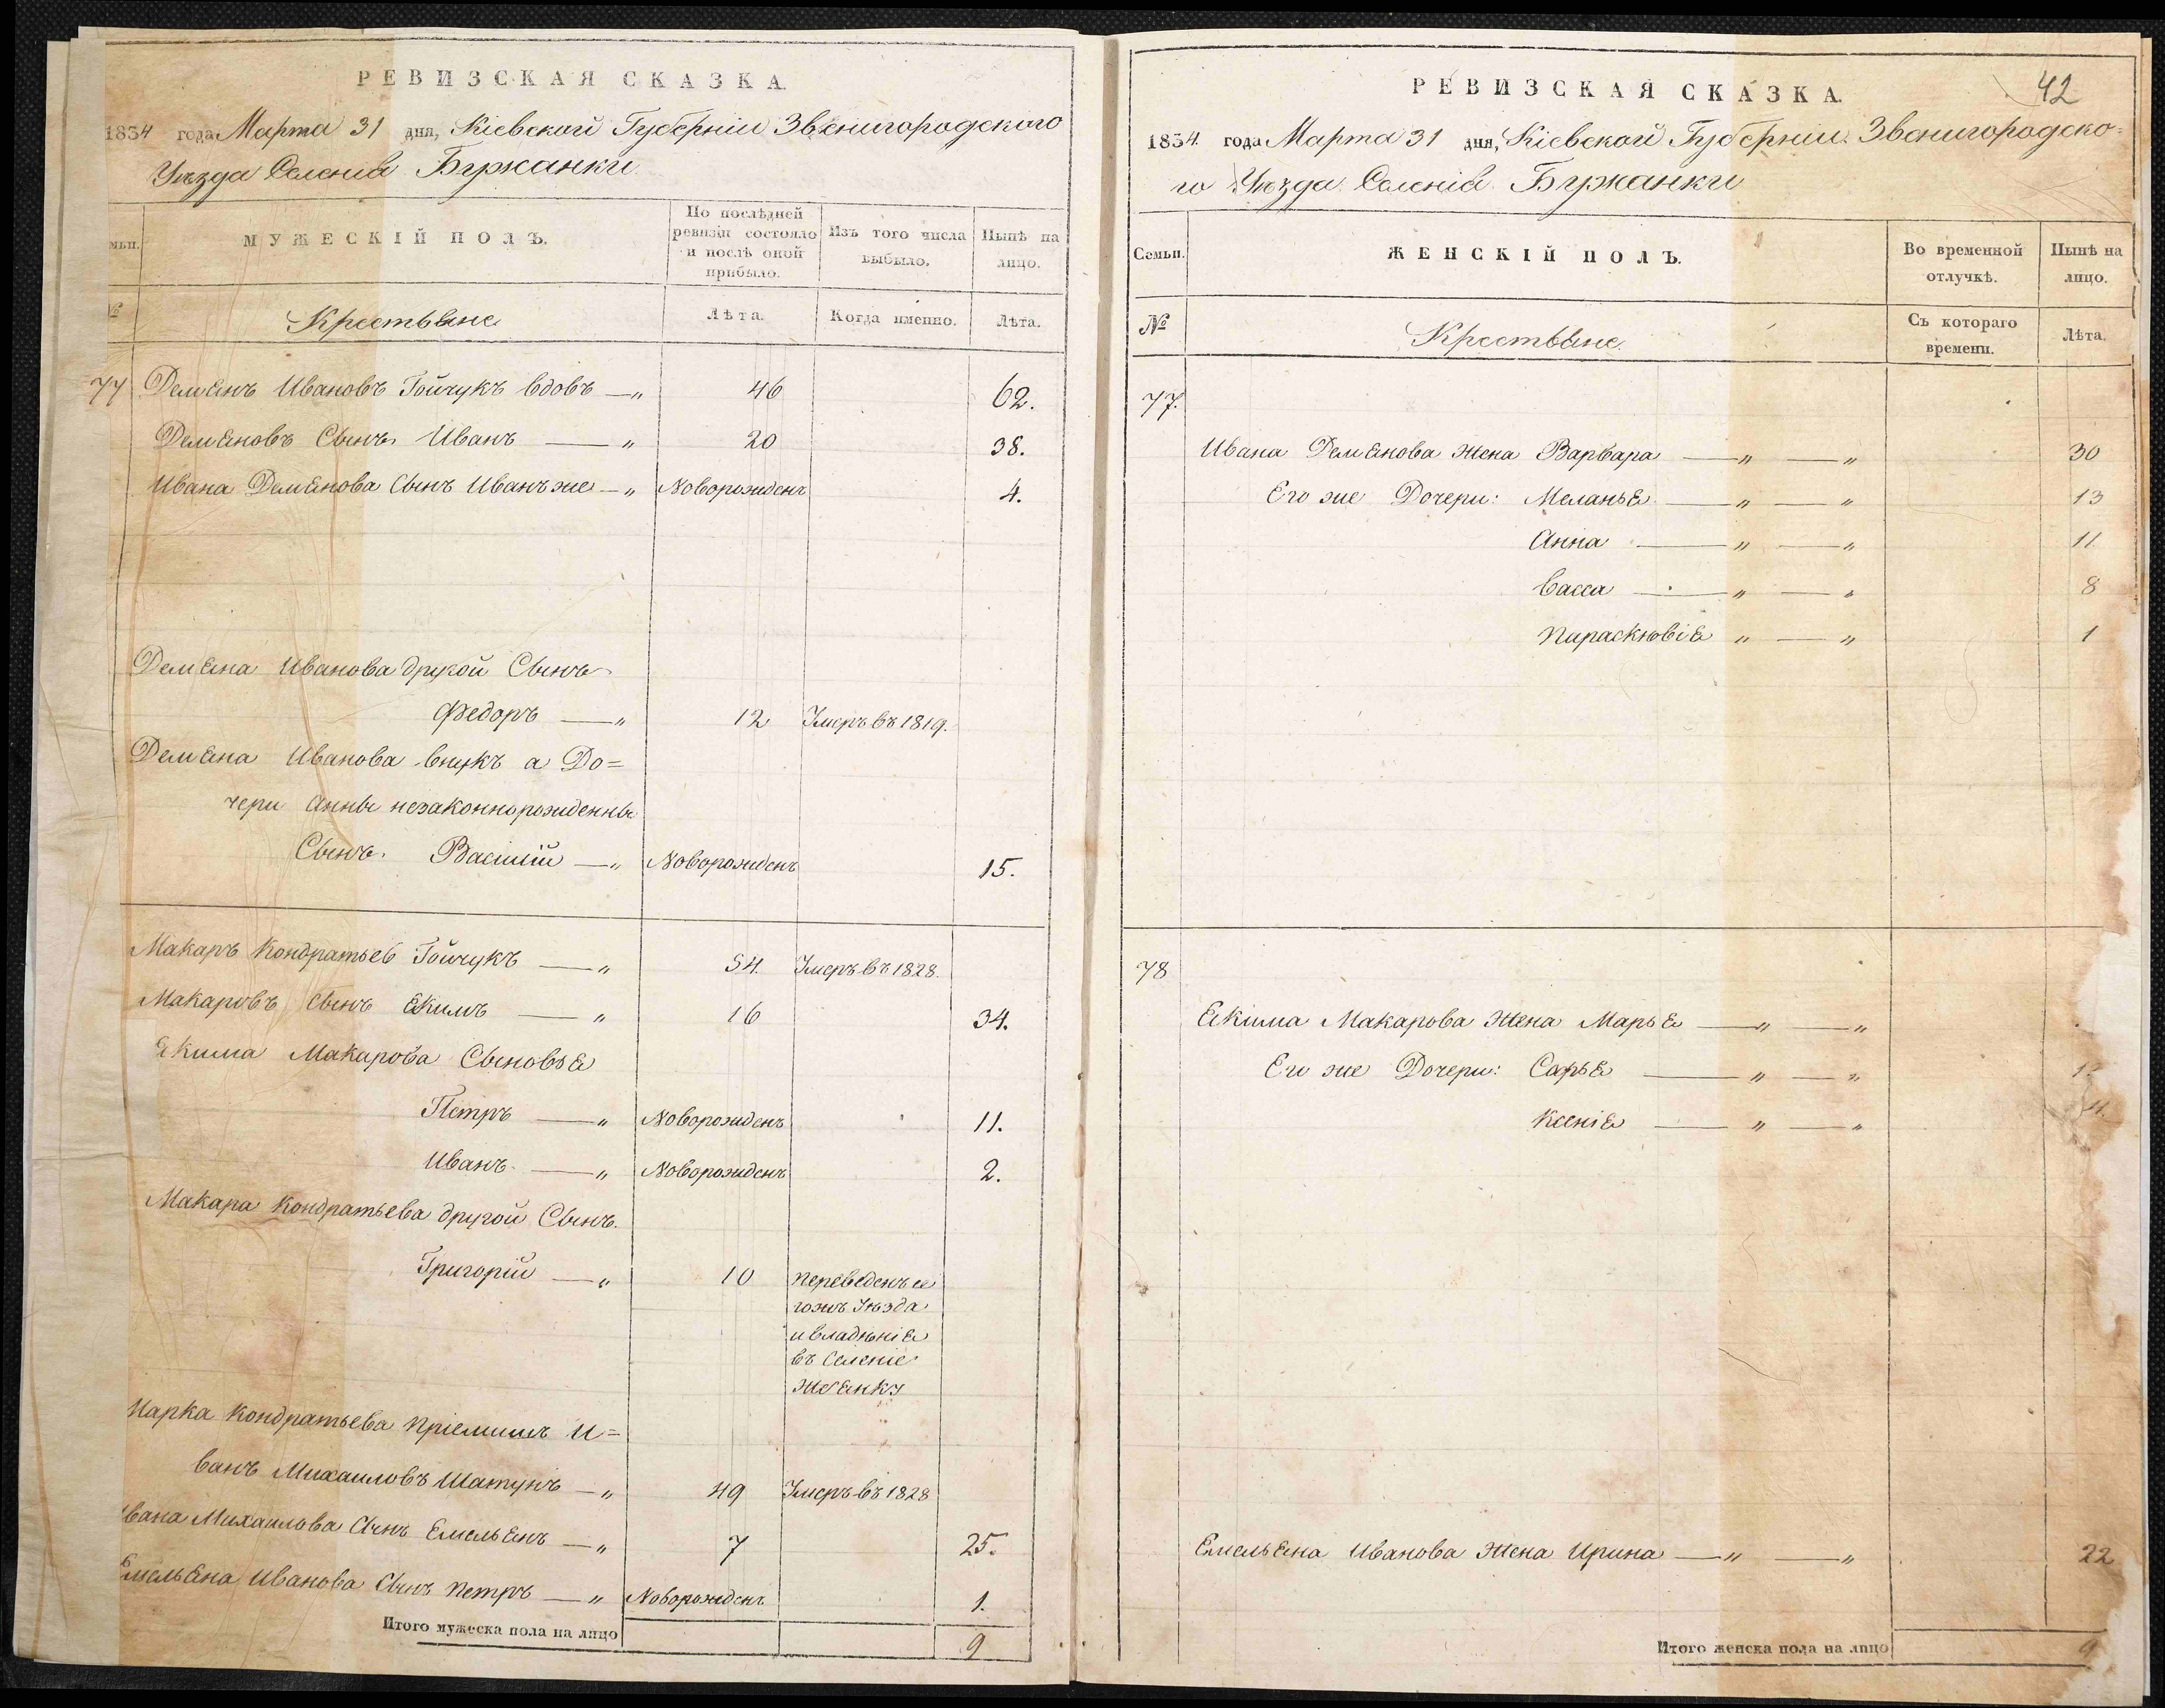 РЕВИЗСКАЯ СКАЗКА.
1834 года Марта 31 дня, Кіевской Губерніи Звенигородского
Уѣзда Селенія Бужанки
мьи.
МУЖЕСКІЙ ПОЛЪ.
По послѣдней ревизіи состояло и послѣ оной прибыло.
Изъ того числа выбыло.
Нынѣ на лицо.
№
Крестьяне
Лѣта.
Когда именно.
Лѣта.
77 Демянъ Ивановъ Гойчукъ вдовъ — „ 46 62.
Демяновъ Сынъ Иванъ — „ 20 38.
Ивана Демянова Сынъ Иванъ же — „ Новорожденъ 4.
Демяна Иванова другой Сынъ
Федоръ — „ 12 Умеръ въ 1819.
Демяна Иванова внукъ а До=
чери Анны незаконнорожденны
Сынъ. Василій — „ Новорожденъ 15.
Макаръ Кондратьев Гойчукъ — „ 54. Умеръ въ 1828.
Макаровъ Сынъ Якимъ — „ 16 34.
Якима Макарова Сыновья
Петръ — „ Новорожденъ 11.
Иванъ — „ Новорожденъ 2.
Макара Кондратьева другой Сынъ.
Григорій — „ 10 переведенъ се
гожъ Уѣзда
и владѣнія
въ Селеніе
Марка Кондратьева пріемишъ И=
ванъ Михаиловъ Шатунъ — „ 49 Умеръ въ 1828
Ивана Михаилова Сынъ Емельянъ — „ 7 25.
Емельяна Иванова Сынъ Петръ — „ Новорожденъ 1.
Итого мужеска пола на лицо 9
РЕВИЗСКАЯ СКАЗКА.
42
1834. года Марта 31 дня, Кіевской Губерніи Звенигородско=
го Уѣзда Селенія Бужанки
Семьи.
ЖЕНСКІЙ ПОЛЪ.
Во временной отлучкѣ.
Нынѣ на лицо.
№
Крестьяне.
Съ котораго времени.
Лѣта.
77.
Ивана Демянова жена Варвара — „ — „ 30
Его же Дочери: Меланья — „ — „ 13
Анна — „ — „ 11.
Васса — „ — „ 8
Параскювія „ — „ 1
78
Якима Макарова жена Марья — „ — „
Его же Дочери: Сарья — „ — „
Ксенія — „ — „
Емельяна Иванова жена Ирина — „ — „ 22
Итого женска пола на лицо 9